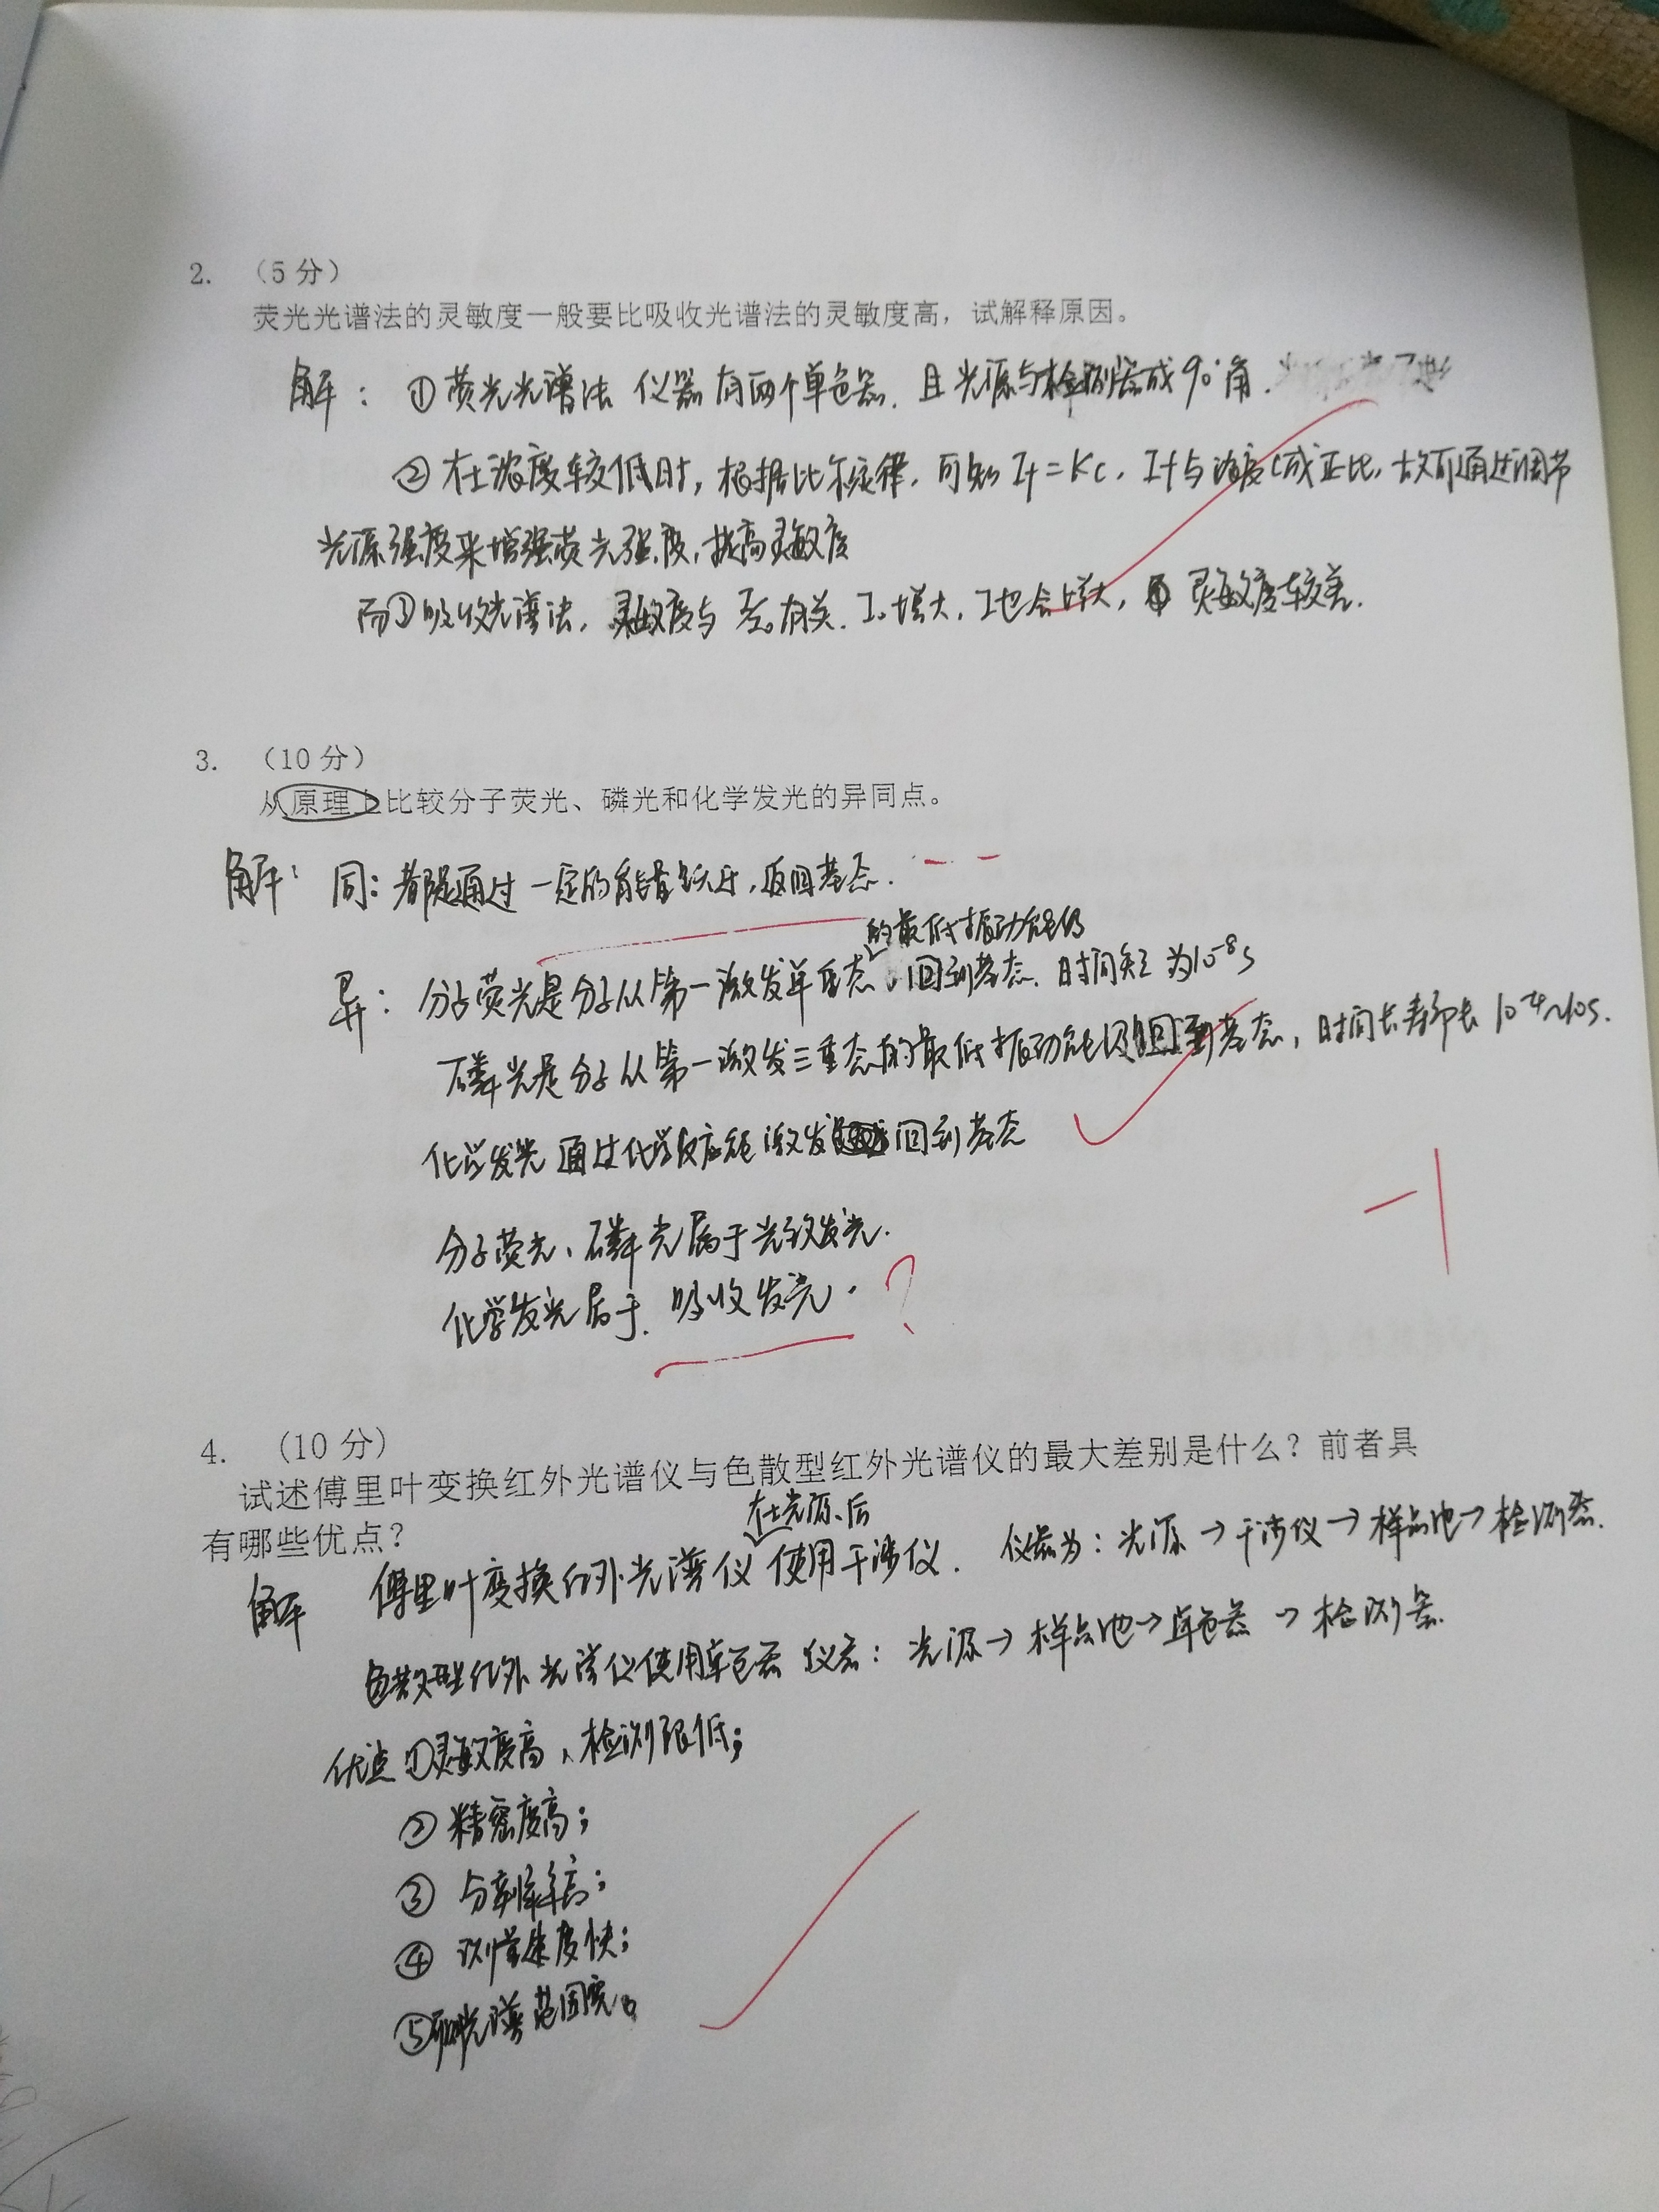 2. （5 分）
荧光光谱法的灵敏度一般要比吸收光谱法的灵敏度高，试解释原因。
解：①荧光光谱法 仪器有两个单色器，且光源与检测器成90°角.
②在浓度较低时，根据比尔定律，可知 If=Kc，If与浓度c成正比，故可通过调节
光源强度来增强荧光强度，提高灵敏度
而③吸收光谱法，灵敏度与 有关. I₀增大，I也会增大， 灵敏度较差.
3. （10 分）
从原理上比较分子荧光、磷光和化学发光的异同点。
解： 同：都是通过一定的能量跃迁，返回基态. - -
的最低振动能级
异： 分子荧光是分子从第一激发单重态 回到基态. 时间短 为10⁻⁸s
磷光是分子从第一激发三重态的最低振动能级回到基态，时间长寿命长 10⁻⁴~10s.
化学发光 通过化学反应能 激发 回到基态
-1
分子荧光、磷光属于光致发光.
化学发光属于. 吸收发光. ?
4. （10 分）
试述傅里叶变换红外光谱仪与色散型红外光谱仪的最大差别是什么？前者具
有哪些优点？
在光源后
解 傅里叶变换红外光谱仪 使用干涉仪. 仪器为：光源→干涉仪→样品池→检测器.
色散型红外光谱仪使用单色器 仪器：光源→样品池→单色器→检测器.
优点 ①灵敏度高、检测限低；
② 精密度高；
③ 分辨率高；
④ 测量速度快；
⑤ 光谱范围宽。